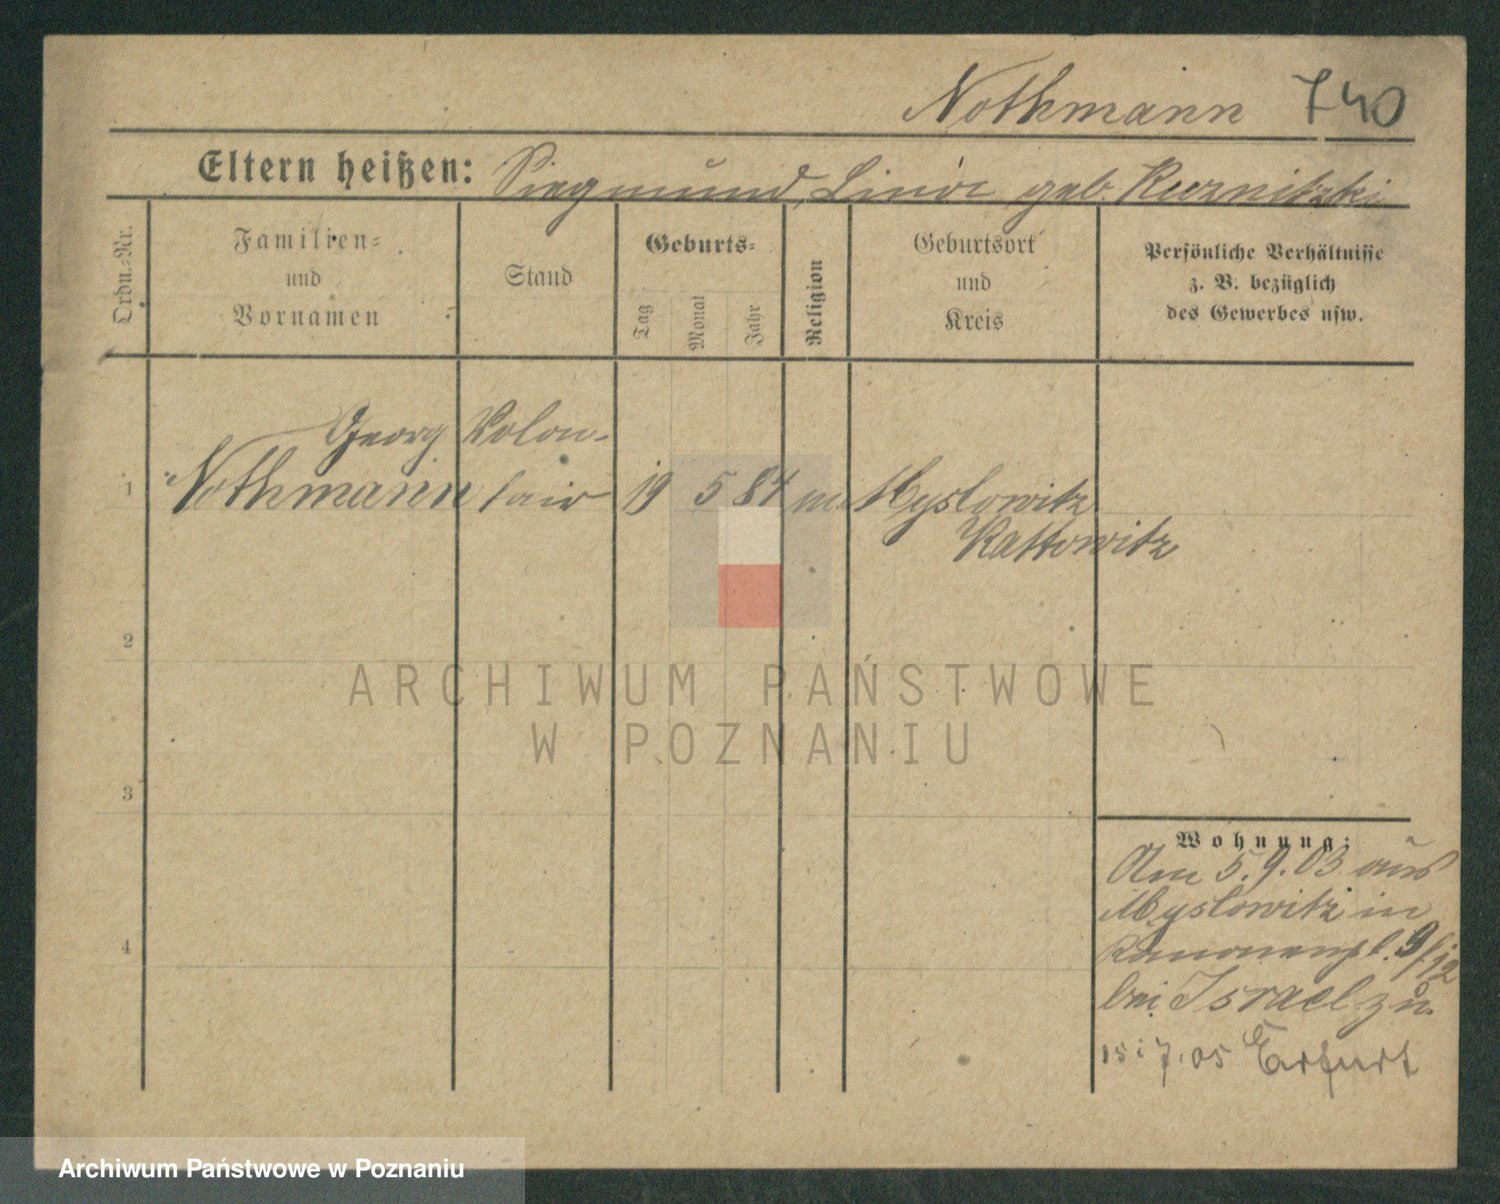 Nothmann 740
Eltern heißen: Siegmund, Lina geb. Kuznitzki
Ordn.-Nr.
Familien=
und
Vornamen
Stand
Geburts=
Tag
Monat
Jahr
Religion
Geburtsort
und
Kreis
Persönliche Verhältnisse
z. B. bezüglich
des Gewerbes usw.
Georg Volon-
1 Nothmann tair 19 5 84 m. Myslowitz
Kattowitz
2
ARCHIWUM PAŃSTWOWE
W POZNANIU
3
Wohnung:
Am 5.9.03 aus
Myslowitz in
9/12
4
bei Israel zu.
15.7.05 Erfurt
Archiwum Państwowe w Poznaniu